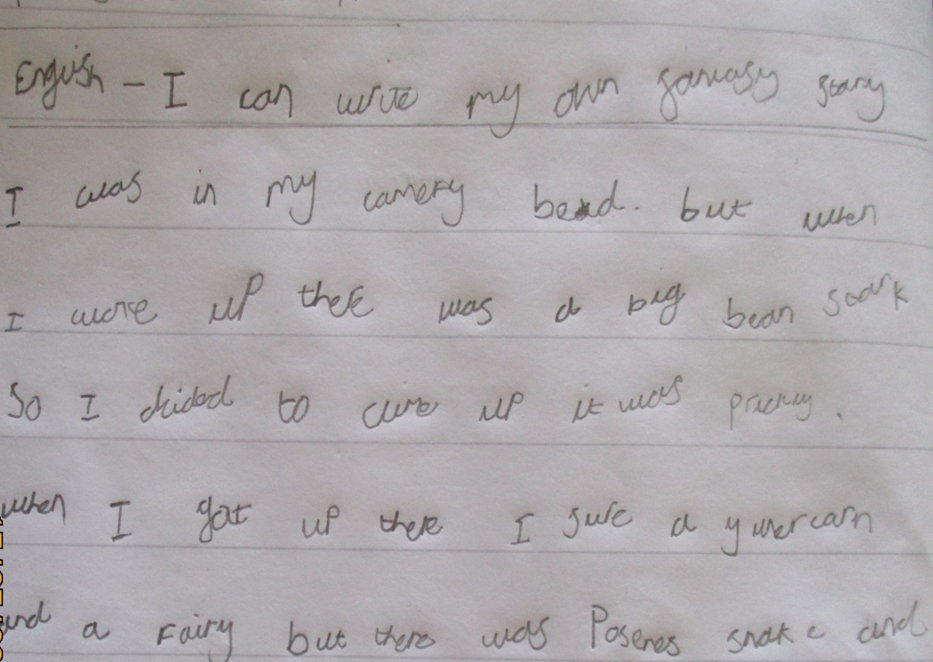 English - I can write my own fantasy story
I was in my comery beed. but when
I wore up there was a big bean stork
So I dicided to clim up it was pricky.
when I got up there I sure a yunercarn
and a Fairy but there was Posenes snake and